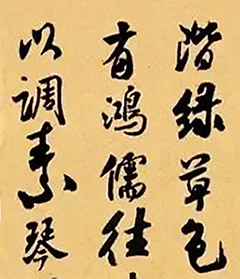 階緑草色
有鴻儒往
以調素琴